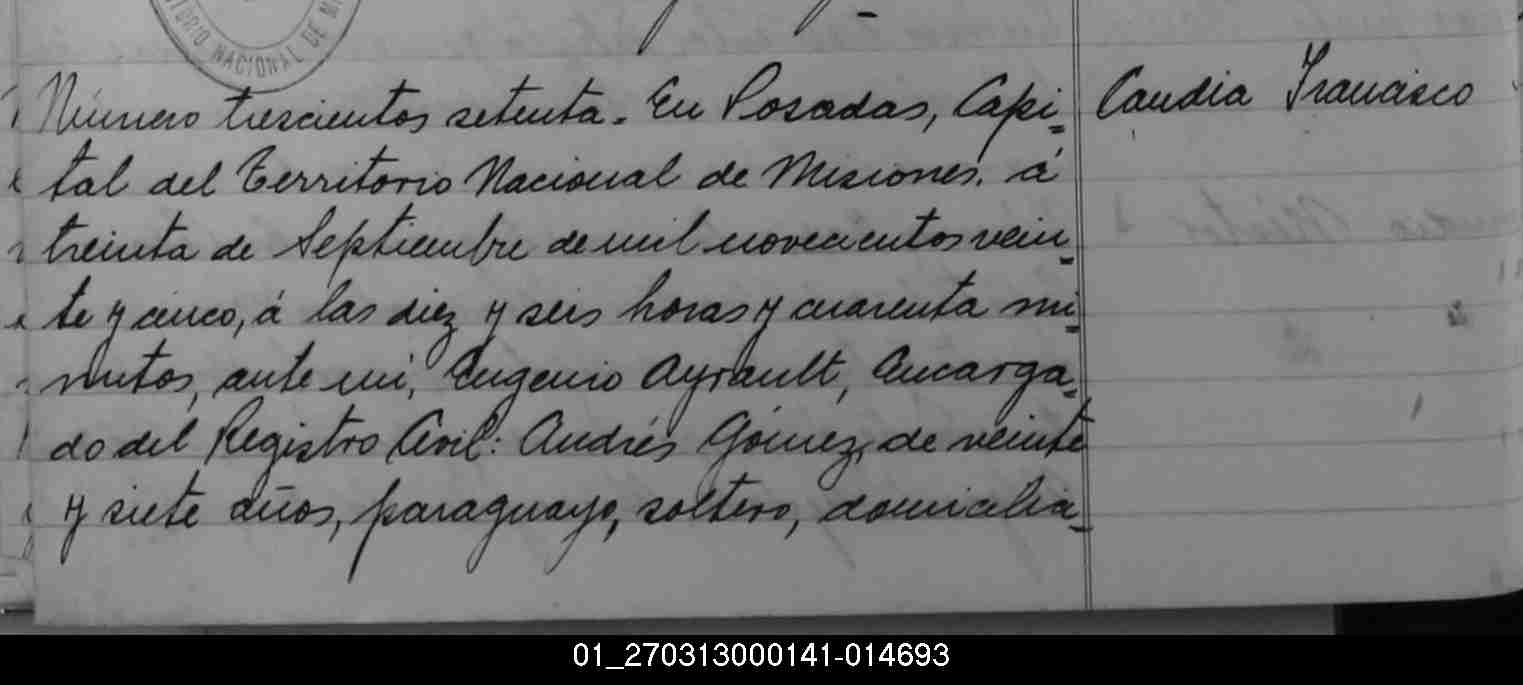 TORIO NACIONAL DE MI
Número trescientos setenta. En Posadas, Capi=
tal del Territorio Nacional de Misiones, á
treinta de Septiembre de mil novecientos vein=
te y cinco, á las diez y seis horas y cuarenta mi=
nutos, ante mi, Eugenio Ayrault, Encarga=
do del Registro Civil: Andrés Gómez, de veinte
y siete años, paraguayo, soltero, domicilia=
Candia Francisco
01_270313000141-014693